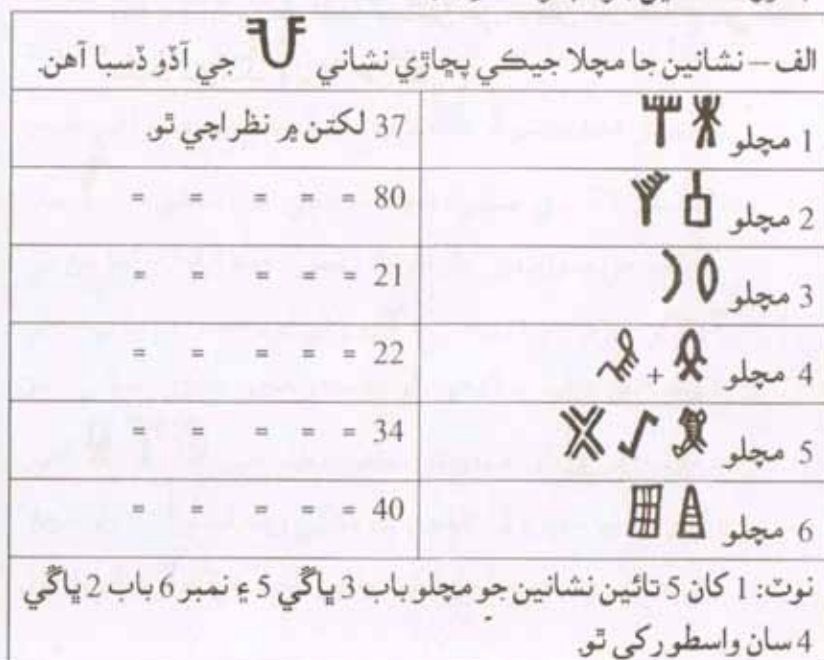 الف – نشانين جا مچلا جيڪي پڇاڙي نشاني جي آڏو ڏسبا آهن.
1 مچلو 37 لکتن ۾ نظر اچي ٿو.
2 مچلو 80 = = = = =
3 مچلو 21 = = = = =
4 مچلو + 22 = = = = =
5 مچلو 34 = = = = =
6 مچلو 40 = = = = =
نوٽ: 1 کان 5 تائين نشانين جو مچلو باب 3 ڀاڱي 5 ۽ نمبر 6 باب 2 ڀاڱي
4 سان واسطو رکي ٿو.